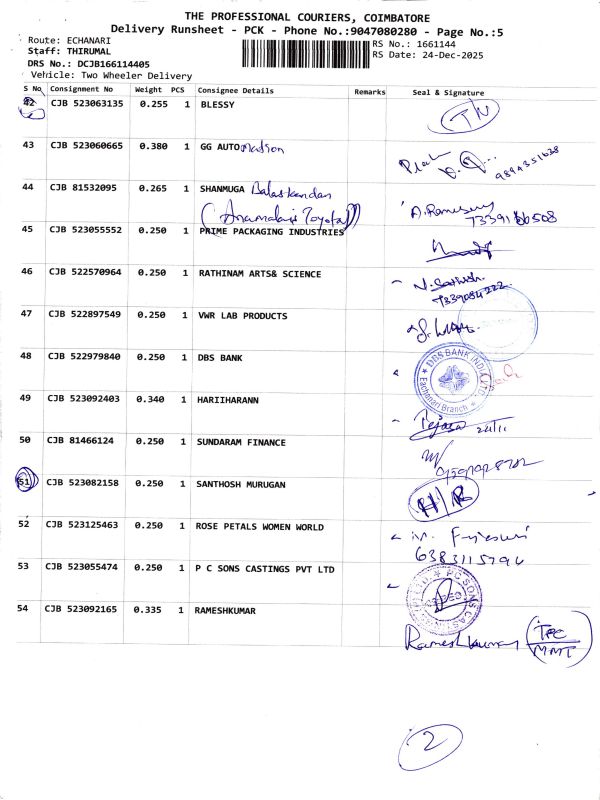 THE PROFESSIONAL COURIERS, COIMBATORE
Delivery Runsheet - PCK - Phone No.:9047080280 - Page No.:5
Route: ECHANARI
RS No.: 1661144
Staff: THIRUMAL
RS Date: 24-Dec-2025
DRS No.: DCJB166114405
Vehicle: Two Wheeler Delivery
S No Consignment No Weight PCS Consignee Details Remarks Seal & Signature
42 CJB 523063135 0.255 1 BLESSY
43 CJB 523060665 0.380 1 GG AUTO
9894351638
44 CJB 81532095 0.265 1 SHANMUGA Balaskandan
(Anamalais Toyota)
45 CJB 523055552 0.250 1 PRIME PACKAGING INDUSTRIES
46 CJB 522570964 0.250 1 RATHINAM ARTS& SCIENCE
7339084222
47 CJB 522897549 0.250 1 VWR LAB PRODUCTS
48 CJB 522979840 0.250 1 DBS BANK
DBS BANK INDIA LTD
Eachanari Branch
49 CJB 523092403 0.340 1 HARIIHARANN
50 CJB 81466124 0.250 1 SUNDARAM FINANCE
51 CJB 523082158 0.250 1 SANTHOSH MURUGAN
H/R
52 CJB 523125463 0.250 1 ROSE PETALS WOMEN WORLD
6383115796
53 CJB 523055474 0.250 1 P C SONS CASTINGS PVT LTD
54 CJB 523092165 0.335 1 RAMESHKUMAR
Rameshkumar
2